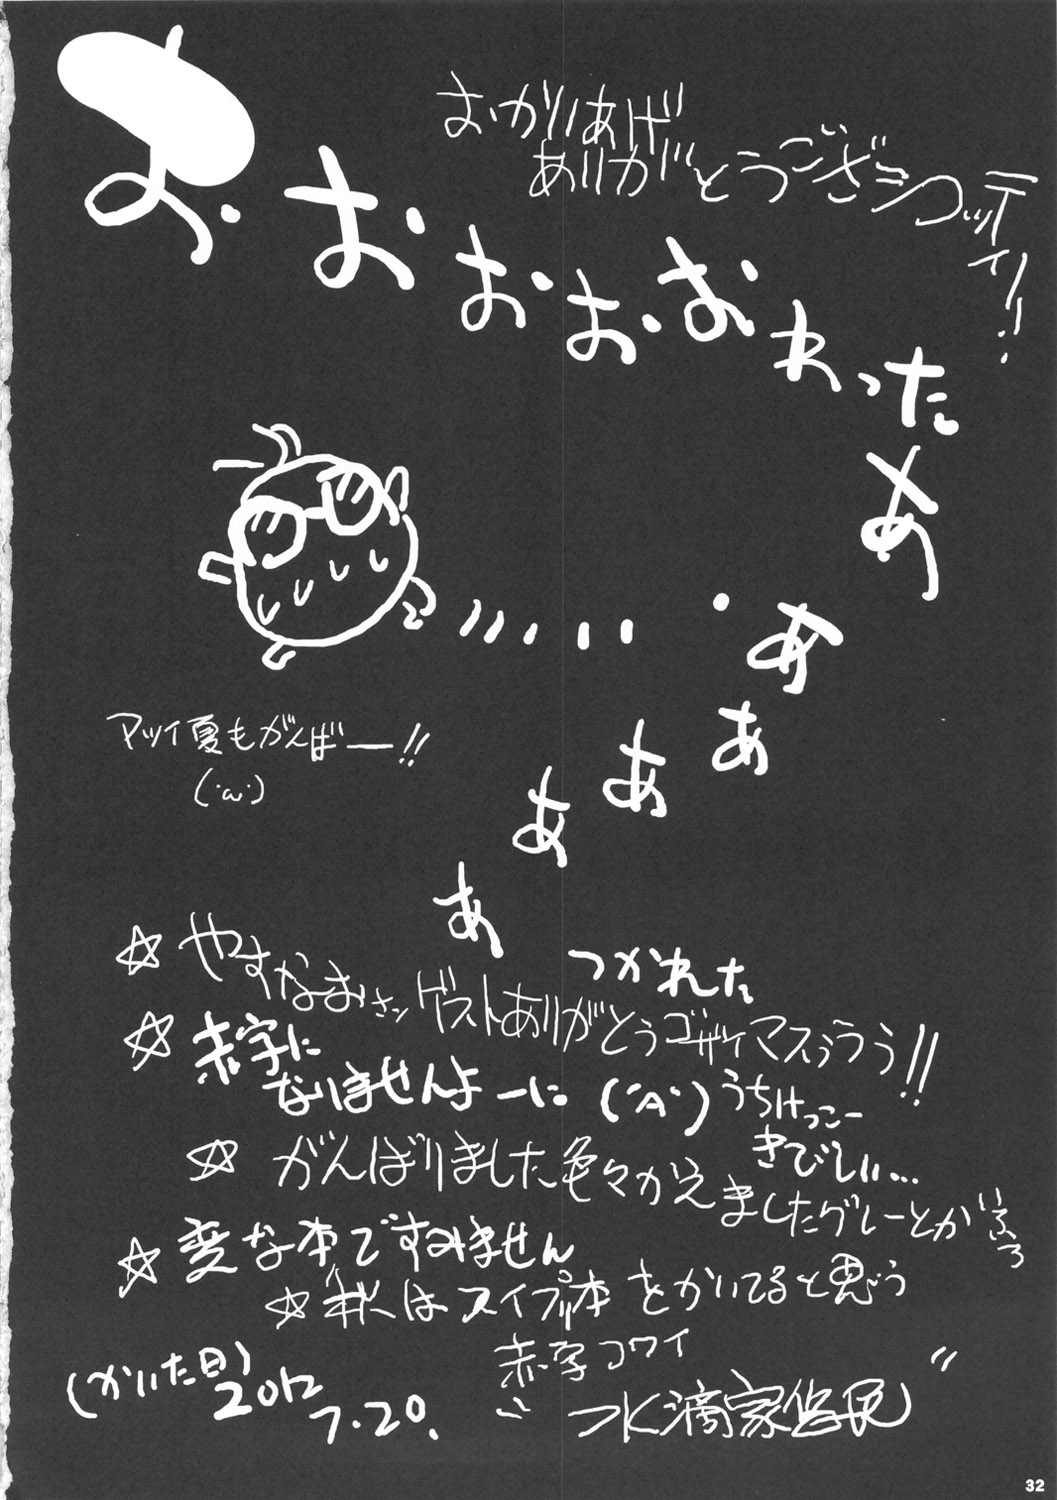 おかいあげ
ありがとうございシコッティ!!
おおおおおわったぁ
ああああぁ
アツイ夏もがんばー!!
(・ω・)
☆やすなおさン ゲストありがとうゴザイマスぅううう!!
つかれた
☆赤字に
なりませんよーに (´A`)
うちけっこー
きびしい…
☆がんばりました色々かえましたグレーとか
☆変な本ですみません
☆私はスイプリ本をかいてると思う
赤字コワイ
(かいた日)
2012
7.20.
水滴家
32